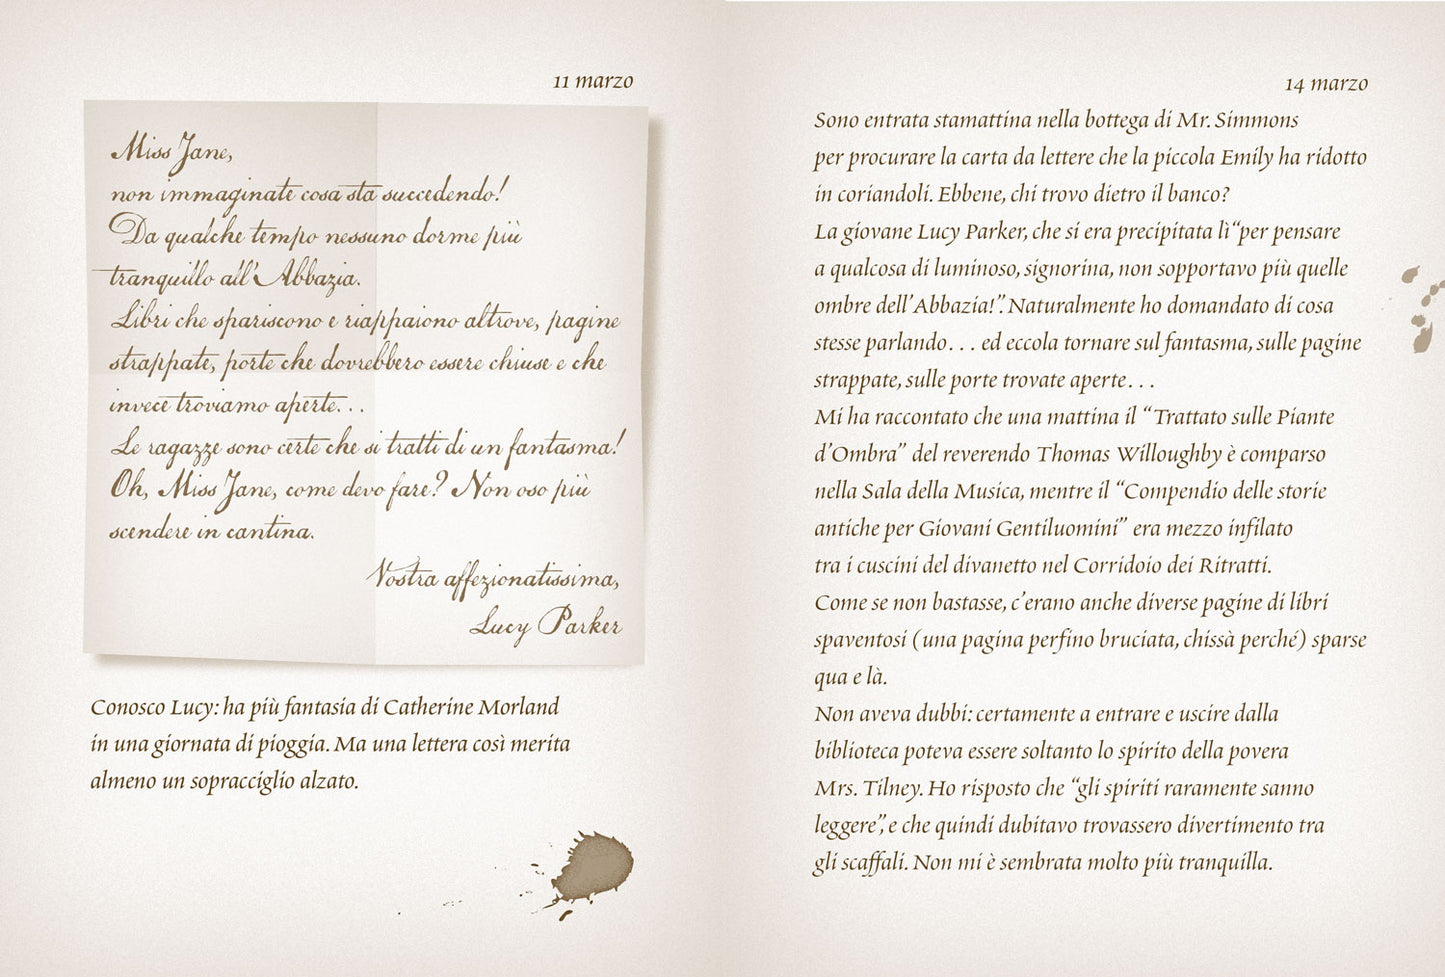 11 marzo
Miss Jane,
non immaginate cosa sta succedendo!
Da qualche tempo nessuno dorme più
tranquillo all'Abbazia.
Libri che spariscono e riappaiono altrove, pagine
strappate, porte che dovrebbero essere chiuse e che
invece troviamo aperte...
Le ragazze sono certe che si tratti di un fantasma!
Oh, Miss Jane, come devo fare? Non oso più
scendere in cantina.
Vostra affezionatissima,
Lucy Parker
Conosco Lucy: ha più fantasia di Catherine Morland
in una giornata di pioggia. Ma una lettera così merita
almeno un sopracciglio alzato.
14 marzo
Sono entrata stamattina nella bottega di Mr. Simmons
per procurare la carta da lettere che la piccola Emily ha ridotto
in coriandoli. Ebbene, chi trovo dietro il banco?
La giovane Lucy Parker, che si era precipitata lì “per pensare
a qualcosa di luminoso, signorina, non sopportavo più quelle
ombre dell'Abbazia!”. Naturalmente ho domandato di cosa
stesse parlando... ed eccola tornare sul fantasma, sulle pagine
strappate, sulle porte trovate aperte...
Mi ha raccontato che una mattina il “Trattato sulle Piante
d'Ombra” del reverendo Thomas Willoughby è comparso
nella Sala della Musica, mentre il “Compendio delle storie
antiche per Giovani Gentiluomini” era mezzo infilato
tra i cuscini del divanetto nel Corridoio dei Ritratti.
Come se non bastasse, c'erano anche diverse pagine di libri
spaventosi (una pagina perfino bruciata, chissà perché) sparse
qua e là.
Non aveva dubbi: certamente a entrare e uscire dalla
biblioteca poteva essere soltanto lo spirito della povera
Mrs. Tilney. Ho risposto che “gli spiriti raramente sanno
leggere”, e che quindi dubitavo trovassero divertimento tra
gli scaffali. Non mi è sembrata molto più tranquilla.